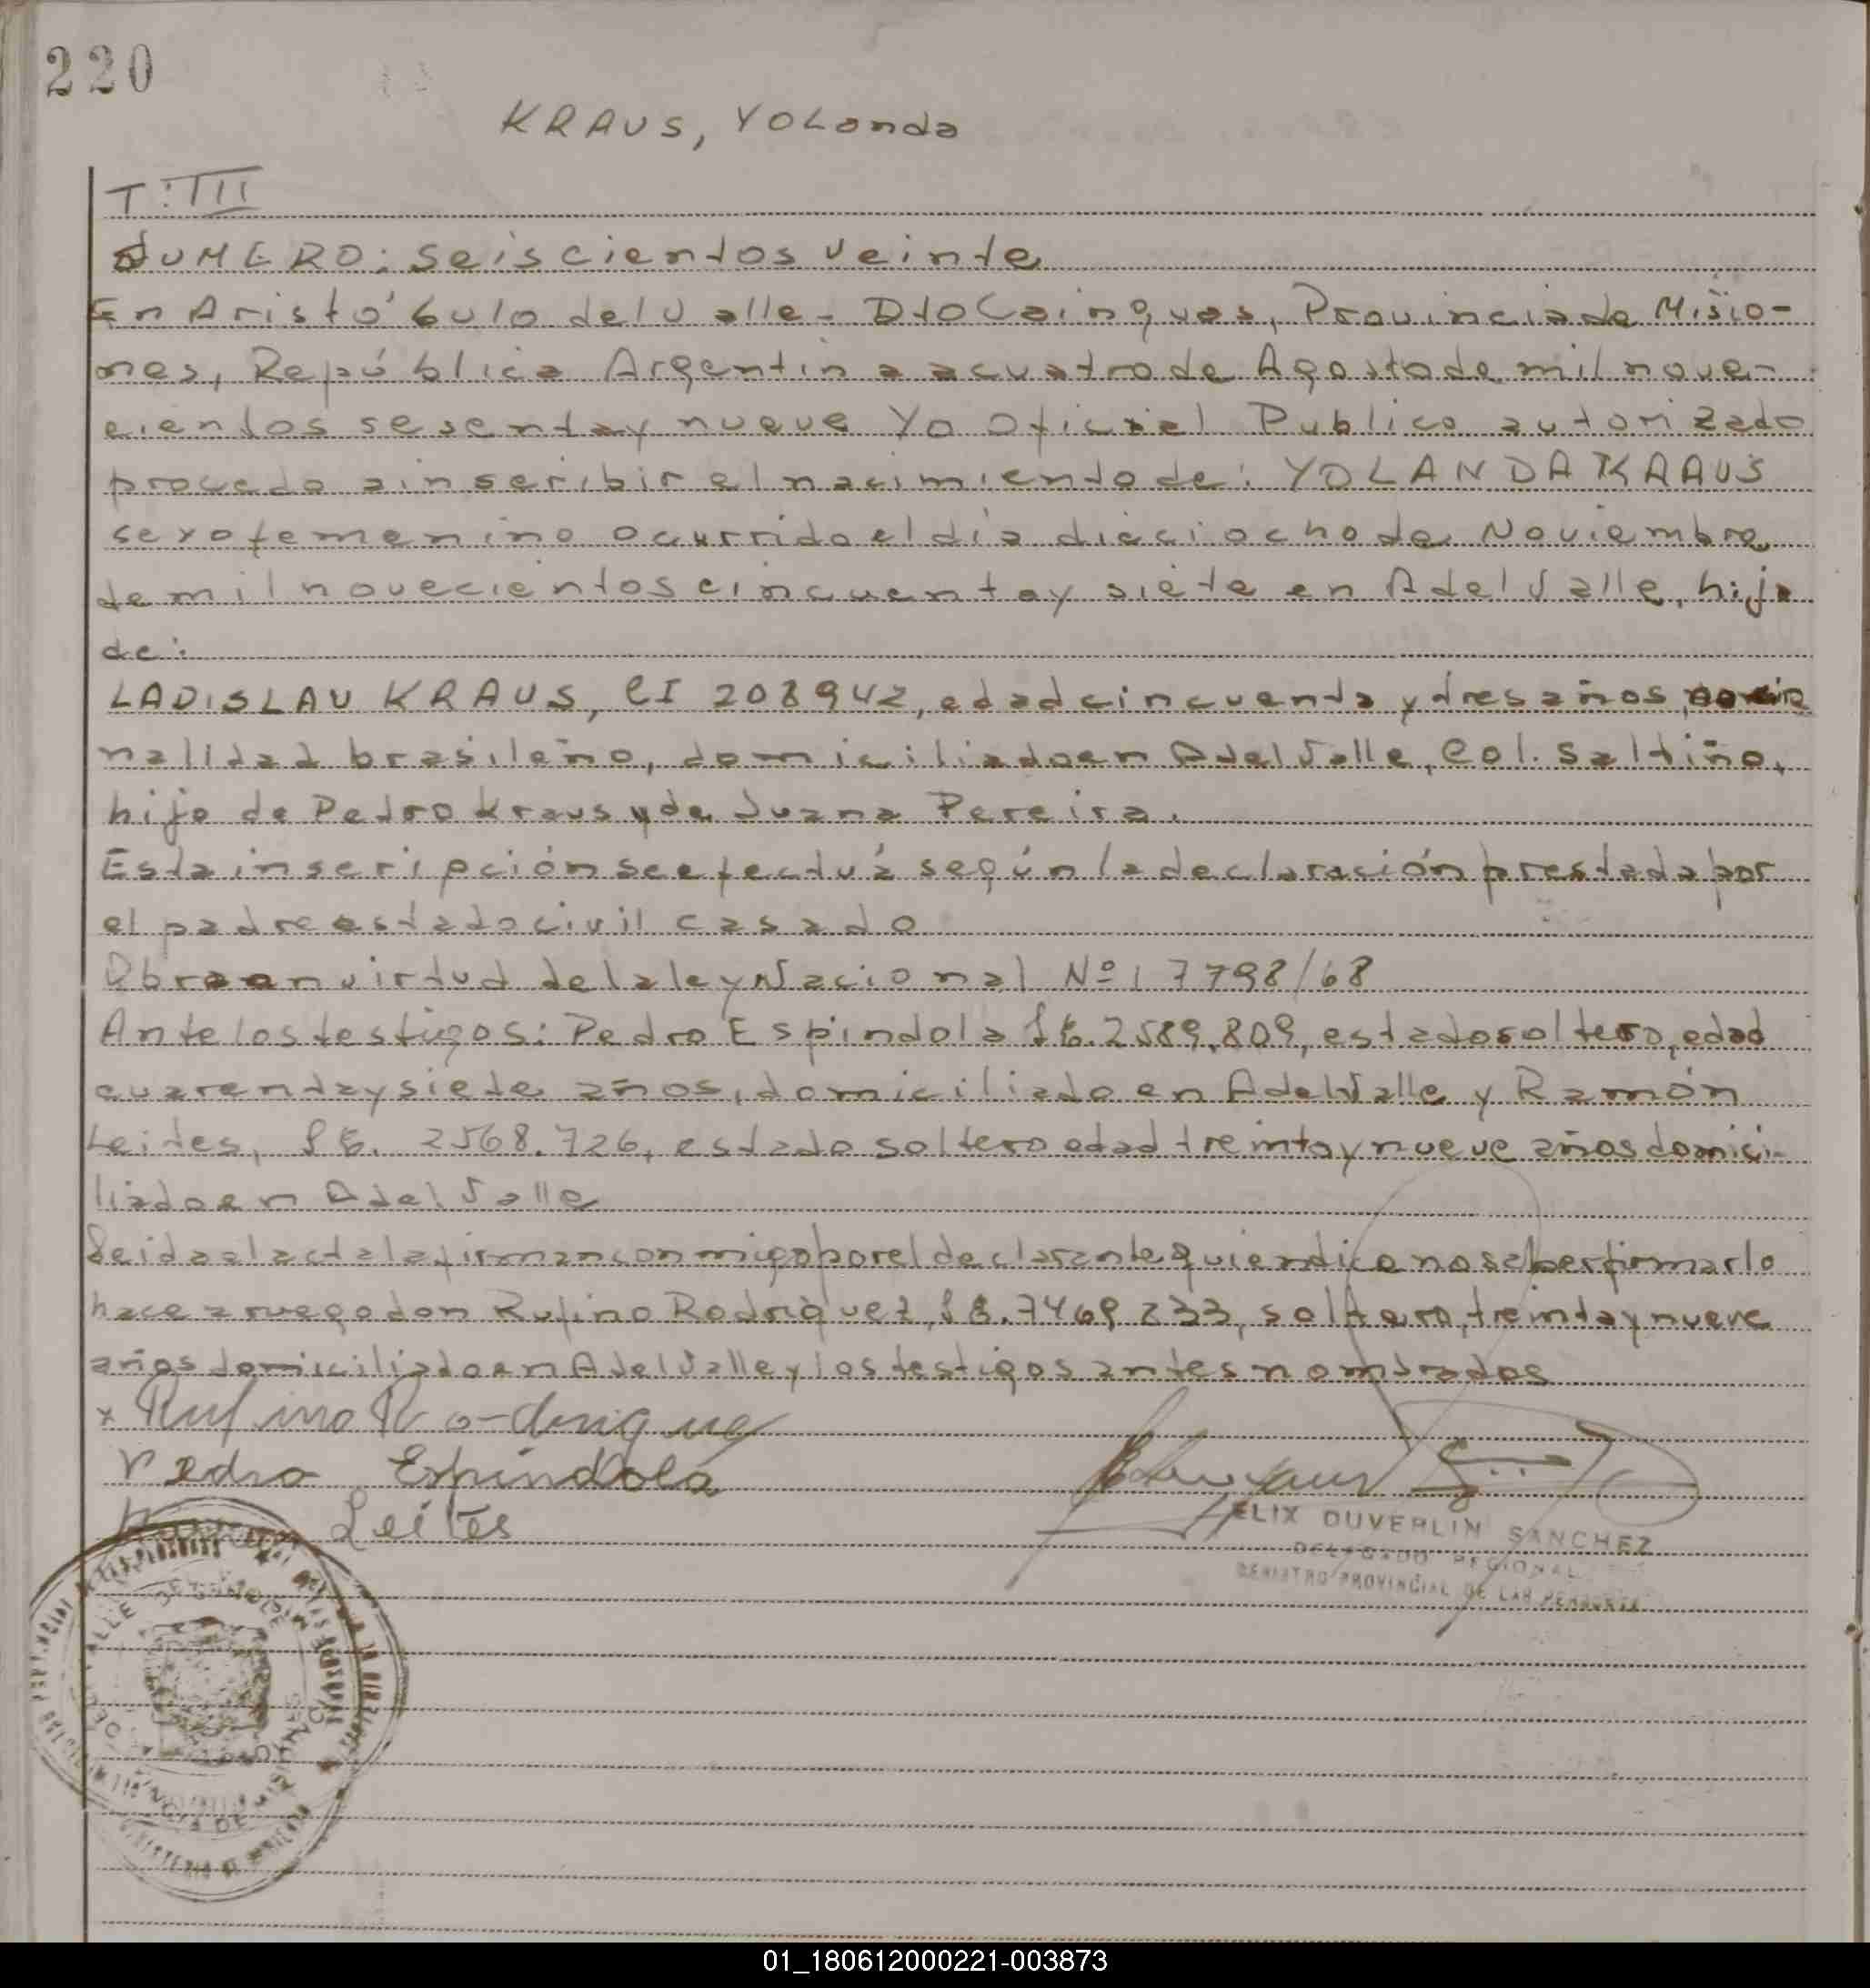 220
KRAUS, YOLanda
T: III
NUMERO: seiscientos veinte
En Aristóbulo del Valle - Dto Cainguas, Provincia de Misio-
nes, República Argentina a cuatro de Agosto de mil nove-
cientos sesenta y nueve Yo Oficial Publico autorizado
procedo a inscribir el nacimiento de: YOLANDA KRAUS
sexo femenino ocurrido el día dieciocho de Noviembre
de mil novecientos cincuenta y siete en A del Valle, hija
de:
LADISLAU KRAUS, CI 208942, edad cincuenta y tres años, nacio
nalidad brasileño, domiciliado en A del Valle, Col. Saltiño,
hijo de Pedro Kraus y de Juana Pereira.
Esta inscripción se efectuá según la declaración prestada por
el padre estado civil casado
Obra en virtud de la ley Nacional Nº 17798/68
Ante los testigos: Pedro Espindola LE. 2589.809, estado soltero, edad
cuarenta y siete años, domiciliado en A del Valle y Ramón
Leites, LE. 2568.726, estado soltero edad treinta y nueve años domici-
liado en A del Valle
Leida el acta la firman conmigo por el declarante quien dice no saber firmar lo
hace a ruego don Rufino Rodriguez, LE. 7469233, soltero, treinta y nueve
años domiciliado en A del Valle y los testigos antes nombrados
x Rufino Ro-drigue
Pedro Espíndola
Leites
FELIX DUVERLIN SANCHEZ
DELEGADO REGIONAL
REGISTRO PROVINCIAL DE LAS PERSONAS
01_180612000221-003873